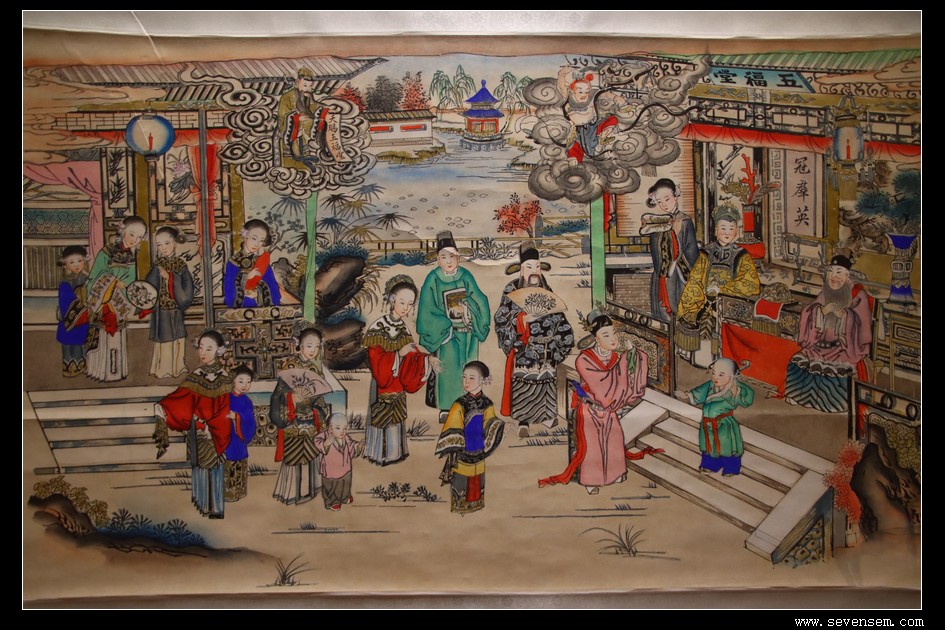 五福堂
冠羣英
www.sevensem.com